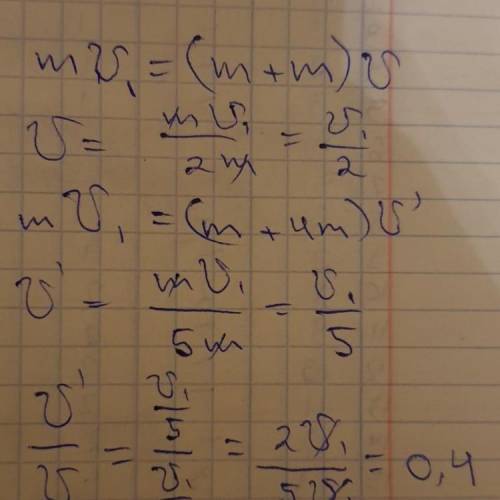 mv₁ = (m + m) v
v = mv₁ / 2m = v₁ / 2
mv₁ = (m + 4m) v'
v' = mv₁ / 5m = v₁ / 5
v' / v = (v₁ / 5) / (v₁ / = 2v₁ / 5v₁ = 0,4